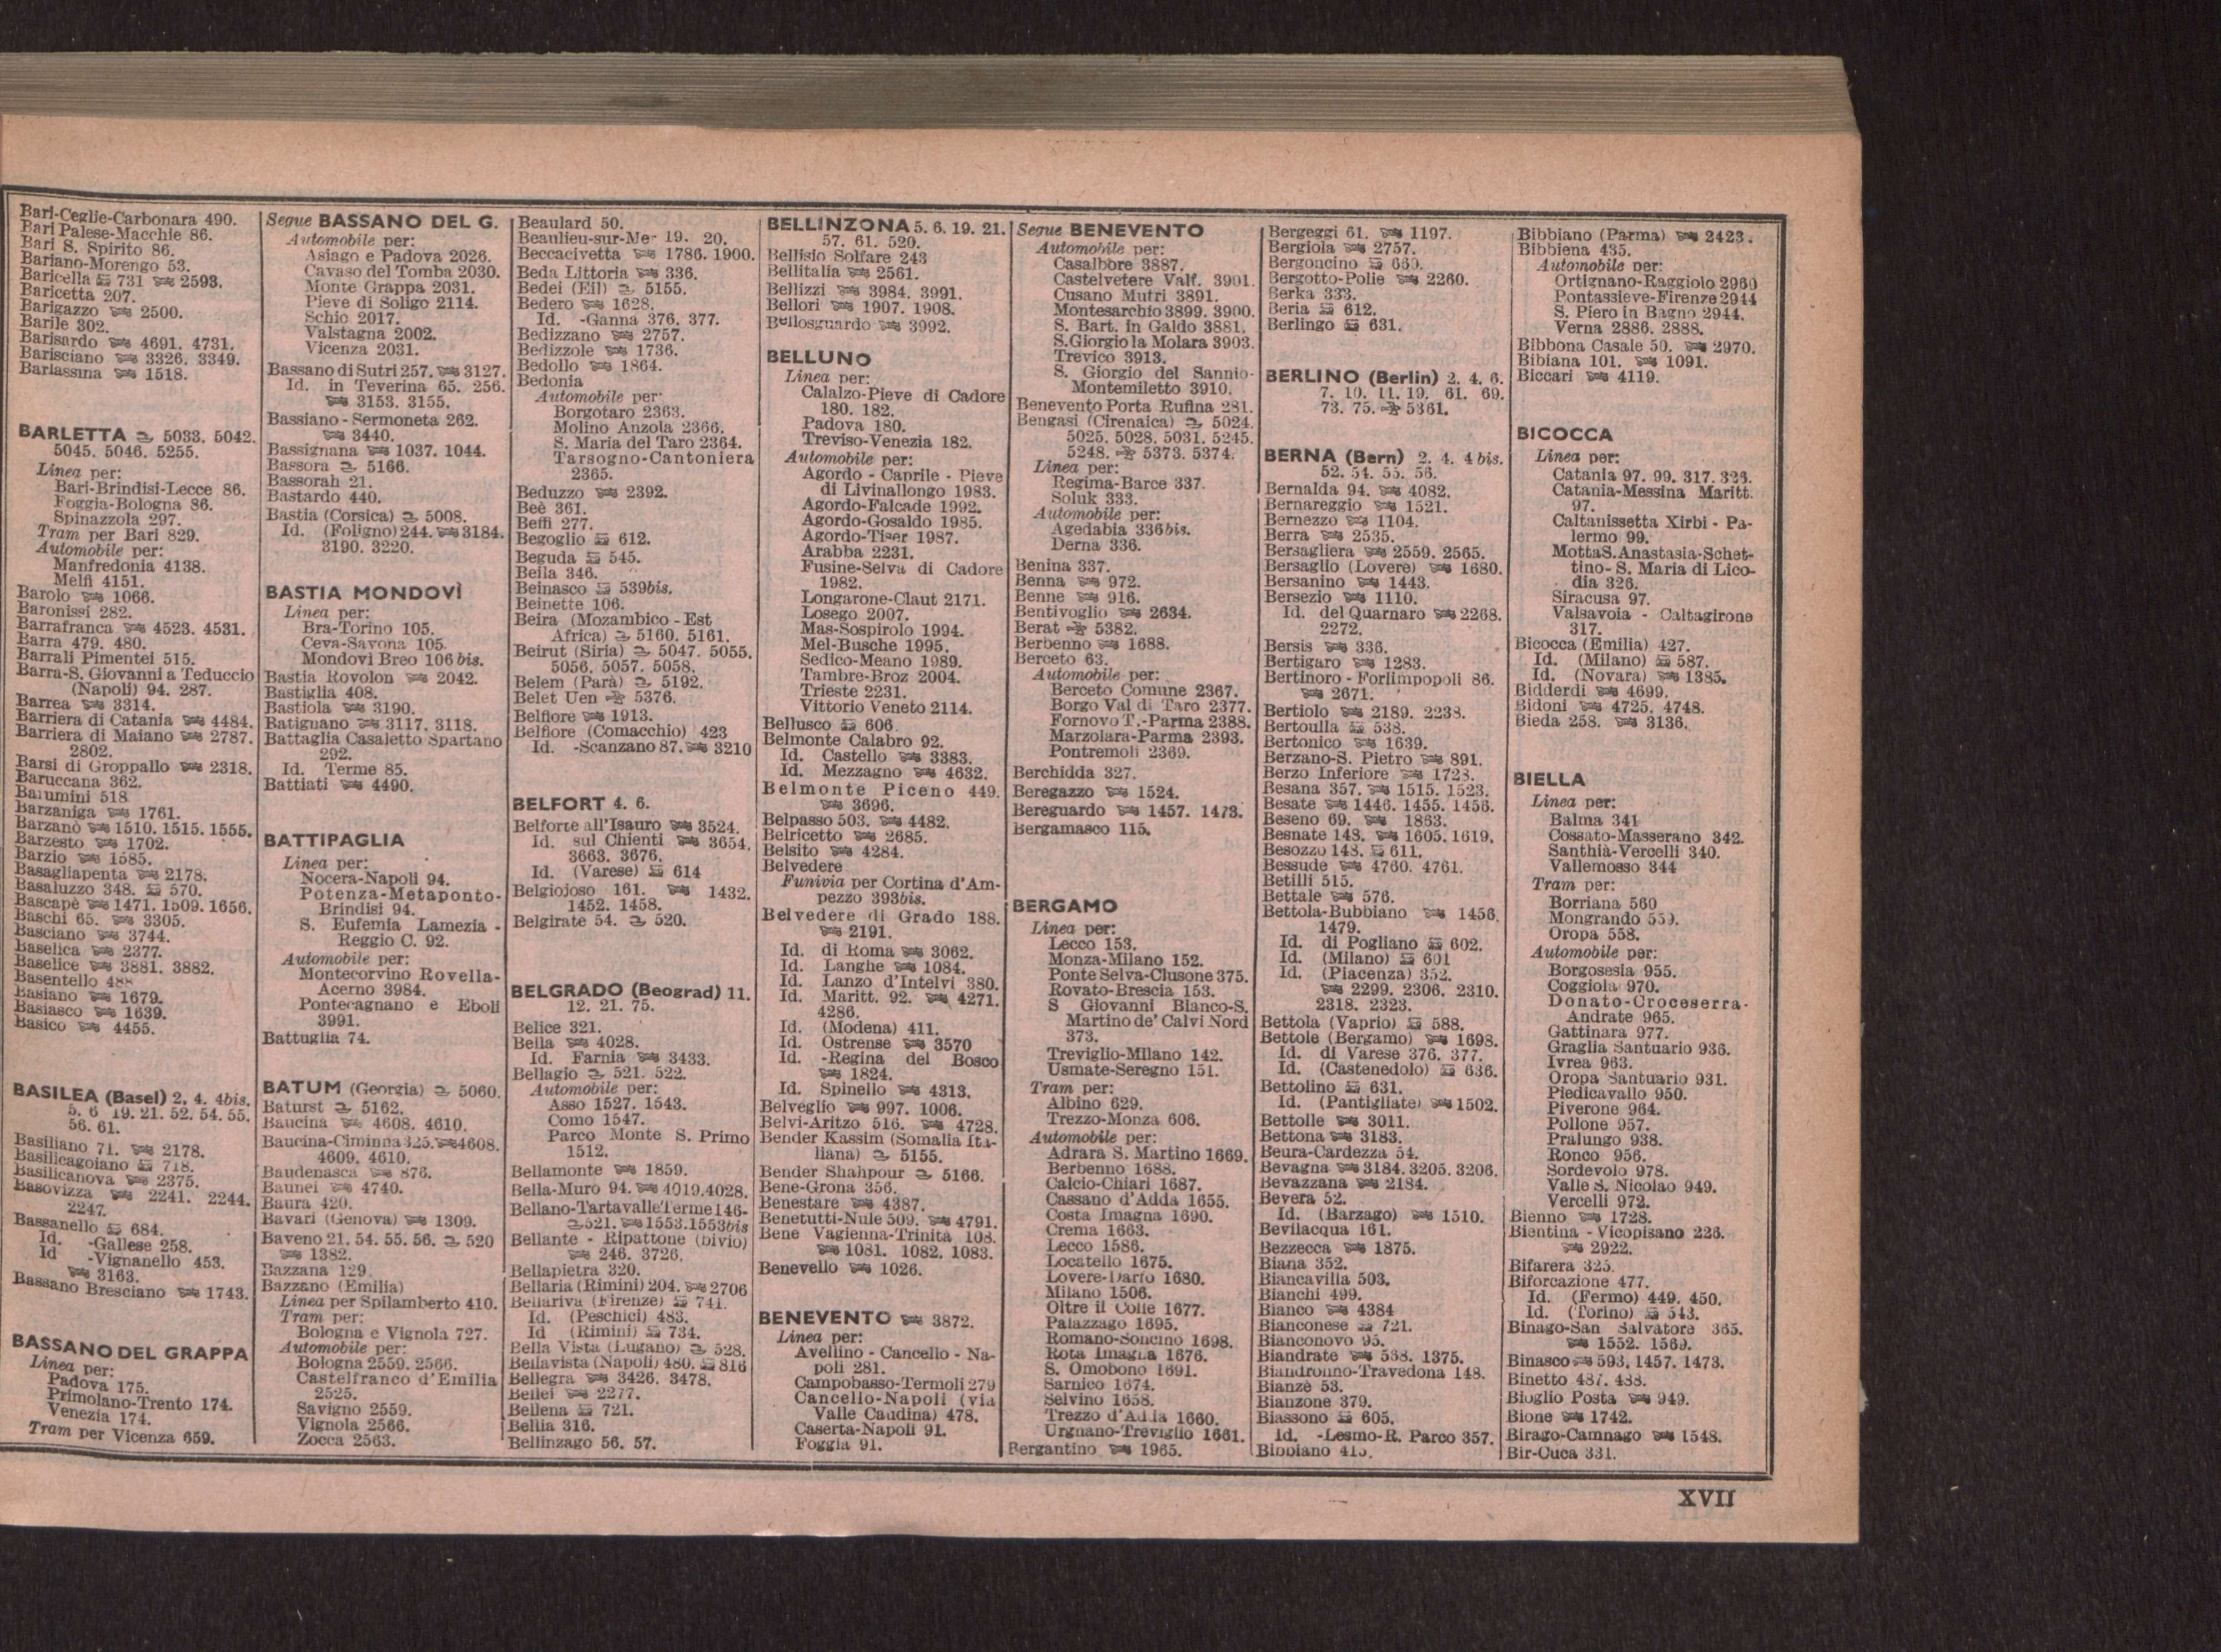 Bari-Ceglie-Carbonara 490.
Bari Palese-Macchie 86.
Bari S. Spirito 86.
Bariano-Morengo 53.
Baricella 731 2593.
Baricetta 207.
Barigazzo 2500.
Barile 302.
Barisardo 4691. 4731.
Barisciano 3326. 3349.
Barlassina 1518.
BARLETTA 5033. 5042.
5045. 5046. 5255.
Linea per:
Bari-Brindisi-Lecce 86.
Foggia-Bologna 86.
Spinazzola 297.
Tram per Bari 829.
Automobile per:
Manfredonia 4138.
Melfi 4151.
Barolo 1066.
Baronissi 282.
Barrafranca 4523. 4531.
Barra 479. 480.
Barrali Pimentel 515.
Barra-S. Giovanni a Teduccio
(Napoli) 94. 287.
Barrea 3314.
Barriera di Catania 4484.
Barriera di Maiano 2787.
2802.
Barsi di Groppallo 2318.
Baruccana 362.
Barumini 518
Barzaniga 1761.
Barzanò 1510. 1515. 1555.
Barzesto 1702.
Barzio 1585.
Basagliapenta 2178.
Basaluzzo 348. 570.
Bascapè 1471. 1509. 1656.
Baschi 65. 3305.
Basciano 3744.
Baselica 2377.
Baselice 3881. 3882.
Basentello 488
Basiano 1679.
Basiasco 1639.
Basico 4455.
BASILEA (Basel) 2. 4. 4bis.
5. 6 19. 21. 52. 54. 55.
56. 61.
Basiliano 71. 2178.
Basilicagoiano 718.
Basilicanova 2375.
Basovizza 2241. 2244.
2247.
Bassanello 684.
Id. -Gallese 258.
Id -Vignanello 453.
3163.
Bassano Bresciano 1743.
BASSANO DEL GRAPPA
Linea per:
Padova 175.
Primolano-Trento 174.
Venezia 174.
Tram per Vicenza 659.
Segue BASSANO DEL G.
Automobile per:
Asiago e Padova 2026.
Cavaso del Tomba 2030.
Monte Grappa 2031.
Pieve di Soligo 2114.
Schio 2017.
Valstagna 2002.
Vicenza 2031.
Bassano di Sutri 257. 3127.
Id. in Teverina 65. 256.
3153. 3155.
Bassiano - Sermoneta 262.
3440.
Bassignana 1037. 1044.
Bassora 5166.
Bassorah 21.
Bastardo 440.
Bastia (Corsica) 5008.
Id. (Foligno) 244. 3184.
3190. 3220.
BASTIA MONDOVÌ
Linea per:
Bra-Torino 105.
Ceva-Savona 105.
Mondovì Breo 106bis.
Bastia Rovolon 2042.
Bastiglia 408.
Bastiola 3190.
Batignano 3117. 3118.
Battaglia Casaletto Spartano
292.
Id. Terme 85.
Battiati 4490.
BATTIPAGLIA
Linea per:
Nocera-Napoli 94.
Potenza-Metaponto-
Brindisi 94.
S. Eufemia Lamezia -
Reggio C. 92.
Automobile per:
Montecorvino Rovella-
Acerno 3984.
Pontecagnano e Eboli
3991.
Battuglia 74.
BATUM (Georgia) 5060.
Baturst 5162.
Baucina 4608. 4610.
Baucina-Ciminna 325. 4608.
4609. 4610.
Baudenasca 876.
Baunei 4740.
Baura 420.
Bavari (Genova) 1309.
Baveno 21. 54. 55. 56. 520
1382.
Bazzana 129.
Bazzano (Emilia)
Linea per Spilamberto 410.
Tram per:
Bologna e Vignola 727.
Automobile per:
Bologna 2559. 2566.
Castelfranco d'Emilia
2525.
Savigno 2559.
Vignola 2566.
Zocca 2563.
Beaulard 50.
Beaulieu-sur-Mer 19. 20.
Beccacivetta 1786. 1900.
Beda Littoria 336.
Bedei (Eil) 5155.
Bedero 1628.
Id. -Ganna 376. 377.
Bedizzano 2757.
Bedizzole 1736.
Bedollo 1864.
Bedonia
Automobile per:
Borgotaro 2363.
Molino Anzola 2366.
S. Maria del Taro 2364.
Tarsogno-Cantoniera
2365.
Beduzzo 2392.
Beè 361.
Beffi 277.
Begoglio 612.
Beguda 545.
Beila 346.
Beinasco 539bis.
Beinette 106.
Beira (Mozambico - Est
Africa) 5160. 5161.
Beirut (Siria) 5047. 5055.
5056. 5057. 5058.
Belem (Parà) 5192.
Belet Uen 5376.
Belfiore 1913.
Belfiore (Comacchio) 423
Id. -Scanzano 87. 3210
BELFORT 4. 6.
Belforte all'Isauro 3524.
Id. sul Chienti 3654.
3663. 3676.
Id. (Varese) 614
Belgiojoso 161. 1432.
1452. 1458.
Belgirate 54. 520.
BELGRADO (Beograd) 11.
12. 21. 75.
Belice 321.
Bella 4028.
Id. Farnia 3433.
Bellagio 521. 522.
Automobile per:
Asso 1527. 1543.
Como 1547.
Parco Monte S. Primo
1512.
Bellamonte 1859.
Bella-Muro 94. 4019.4028.
Bellano-Tartavalle Terme 146-
521. 1553.1553bis
Bellante - Ripattone (bivio)
246. 3726.
Bellapietra 320.
Bellaria (Rimini) 204. 2706
Bellariva (Firenze) 741.
Id. (Peschici) 483.
Id (Rimini) 734.
Bella Vista (Lugano) 528.
Bellavista (Napoli) 480. 816
Bellegra 3426. 3478.
Bellei 2277.
Bellena 721.
Bellia 316.
Bellinzago 56. 57.
BELLINZONA 5. 6. 19. 21.
57. 61. 520.
Bellisio Solfare 243
Bellitalia 2561.
Bellizzi 3984. 3991.
Bellori 1907. 1908.
Bellosguardo 3992.
BELLUNO
Linea per:
Calalzo-Pieve di Cadore
180. 182.
Padova 180.
Treviso-Venezia 182.
Automobile per:
Agordo - Caprile - Pieve
di Livinallongo 1983.
Agordo-Falcade 1992.
Agordo-Gosaldo 1985.
Agordo-Tiser 1987.
Arabba 2231.
Fusine-Selva di Cadore
1982.
Longarone-Claut 2171.
Losego 2007.
Mas-Sospirolo 1994.
Mel-Busche 1995.
Sedico-Meano 1989.
Tambre-Broz 2004.
Trieste 2231.
Vittorio Veneto 2114.
Bellusco 606.
Belmonte Calabro 92.
Id. Castello 3383.
Id. Mezzagno 4632.
Belmonte Piceno 449.
3696.
Belpasso 503. 4482.
Belricetto 2685.
Belsito 4284.
Belvedere
Funivia per Cortina d'Am-
pezzo 393bis.
Belvedere di Grado 188.
2191.
Id. di Roma 3062.
Id. Langhe 1084.
Id. Lanzo d'Intelvi 380.
Id. Maritt. 92. 4271.
4286.
Id. (Modena) 411.
Id. Ostrense 3570
Id. -Regina del Bosco
1824.
Id. Spinello 4313.
Belveglio 997. 1006.
Belvi-Aritzo 516. 4728.
Bender Kassim (Somalia Ita-
liana) 5155.
Bender Shahpour 5166.
Bene-Grona 356.
Benestare 4387.
Benetutti-Nule 509. 4791.
Bene Vagienna-Trinità 108.
1081. 1082. 1083.
Benevello 1026.
BENEVENTO 3872.
Linea per:
Avellino - Cancello - Na-
poli 281.
Campobasso-Termoli 279
Cancello-Napoli (via
Valle Caudina) 478.
Caserta-Napoli 91.
Foggia 91.
Segue BENEVENTO
Automobile per:
Casalbore 3887.
Castelvetere Valf. 3901.
Cusano Mutri 3891.
Montesarchio 3899. 3900.
S. Bart. in Galdo 3881.
S.Giorgio la Molara 3903.
Trevico 3913.
S. Giorgio del Sannio-
Montemiletto 3910.
Benevento Porta Rufina 281.
Bengasi (Cirenaica) 5024.
5025. 5028. 5031. 5245.
5248. 5373. 5374.
Linea per:
Regima-Barce 337.
Soluk 333.
Automobile per:
Agedabia 336bis.
Derna 336.
Benina 337.
Benna 972.
Benne 916.
Bentivoglio 2634.
Berat 5382.
Berbenno 1688.
Berceto 63.
Automobile per:
Berceto Comune 2367.
Borgo Val di Taro 2377.
Fornovo T.-Parma 2388.
Marzolara-Parma 2393.
Pontremoli 2369.
Berchidda 327.
Beregazzo 1524.
Bereguardo 1457. 1473.
Bergamasco 115.
BERGAMO
Linea per:
Lecco 153.
Monza-Milano 152.
Ponte Selva-Clusone 375.
Rovato-Brescia 153.
S Giovanni Bianco-S.
Martino de' Calvi Nord
373.
Treviglio-Milano 142.
Usmate-Seregno 151.
Tram per:
Albino 629.
Trezzo-Monza 606.
Automobile per:
Adrara S. Martino 1669.
Berbenno 1688.
Calcio-Chiari 1687.
Cassano d'Adda 1655.
Costa Imagna 1690.
Crema 1663.
Lecco 1586.
Locatello 1675.
Lovere-Darfo 1680.
Milano 1506.
Oltre il Colle 1677.
Palazzago 1695.
Romano-Soncino 1698.
Rota Imagna 1676.
S. Omobono 1691.
Sarnico 1674.
Selvino 1658.
Trezzo d'Adda 1660.
Urgnano-Treviglio 1661.
Bergantino 1965.
Bergeggi 61. 1197.
Bergiola 2757.
Bergoncino 660.
Bergotto-Polie 2260.
Berka 333.
Beria 612.
Berlingo 631.
BERLINO (Berlin) 2. 4. 6.
7. 10. 11. 19. 61. 69.
73. 75. 5361.
BERNA (Bern) 2. 4. 4bis.
52. 54. 55. 56.
Bernalda 94. 4082.
Bernareggio 1521.
Bernezzo 1104.
Berra 2535.
Bersagliera 2559. 2565.
Bersaglio (Lovere) 1680.
Bersanino 1443.
Bersezio 1110.
Id. del Quarnaro 2268.
2272.
Bersis 336.
Bertigaro 1283.
Bertinoro - Forlimpopoli 86.
2671.
Bertiolo 2189. 2238.
Bertoulla 538.
Bertonico 1639.
Berzano-S. Pietro 891.
Berzo Inferiore 1723.
Besana 357. 1515. 1523.
Besate 1446. 1455. 1456.
Beseno 69. 1863.
Besnate 148. 1605. 1619.
Besozzo 143. 611.
Bessude 4760. 4761.
Betilli 515.
Bettale 576.
Bettola-Bubbiano 1456.
1479.
Id. di Pogliano 602.
Id. (Milano) 601
Id. (Piacenza) 352.
2299. 2306. 2310.
2318. 2323.
Bettola (Vaprio) 588.
Bettole (Bergamo) 1698.
Id. di Varese 376. 377.
Id. (Castenedolo) 636.
Bettolino 631.
Id. (Pantigliate) 1502.
Bettolle 3011.
Bettona 3183.
Beura-Cardezza 54.
Bevagna 3184. 3205. 3206.
Bevazzana 2184.
Bevera 52.
Id. (Barzago) 1510.
Bevilacqua 161.
Bezzecca 1875.
Biana 352.
Biancavilla 503.
Bianchi 499.
Bianco 4384
Bianconese 721.
Bianconovo 95.
Biandrate 538. 1375.
Biandronno-Travedona 148.
Bianzè 53.
Bianzone 379.
Biassono 605.
Id. -Lesmo-R. Parco 357.
Bibbiano 415.
Bibbiano (Parma) 2423.
Bibbiena 435.
Automobile per:
Ortignano-Raggiolo 2960
Pontassieve-Firenze 2944
S. Piero in Bagno 2944.
Verna 2886. 2888.
Bibbona Casale 50. 2970.
Bibiana 101. 1091.
Biccari 4119.
BICOCCA
Linea per:
Catania 97. 99. 317. 326.
Catania-Messina Maritt.
97.
Caltanissetta Xirbi - Pa-
lermo 99.
MottaS.Anastasia-Schet-
tino- S. Maria di Lico-
dia 326.
Siracusa 97.
Valsavoia - Caltagirone
317.
Bicocca (Emilia) 427.
Id. (Milano) 587.
Id. (Novara) 1385.
Bidderdi 4699.
Bidoni 4725. 4748.
Bieda 258. 3136.
BIELLA
Linea per:
Balma 341
Cossato-Masserano 342.
Santhià-Vercelli 340.
Vallemosso 344
Tram per:
Borriana 560
Mongrando 559.
Oropa 558.
Automobile per:
Borgosesia 955.
Coggiola 970.
Donato-Croceserra-
Andrate 965.
Gattinara 977.
Graglia Santuario 936.
Ivrea 963.
Oropa Santuario 931.
Piedicavallo 950.
Piverone 964.
Pollone 957.
Pralungo 938.
Ronco 956.
Sordevolo 978.
Valle S. Nicolao 949.
Vercelli 972.
Bienno 1728.
Bientina - Vicopisano 226.
2922.
Bifarera 325.
Biforcazione 477.
Id. (Fermo) 449. 450.
Id. (Torino) 543.
Binago-San Salvatore 365.
1552. 1569.
Binasco 593. 1457. 1473.
Binetto 487. 488.
Bioglio Posta 949.
Bione 1742.
Birago-Camnago 1548.
Bir-Cuca 331.
XVII